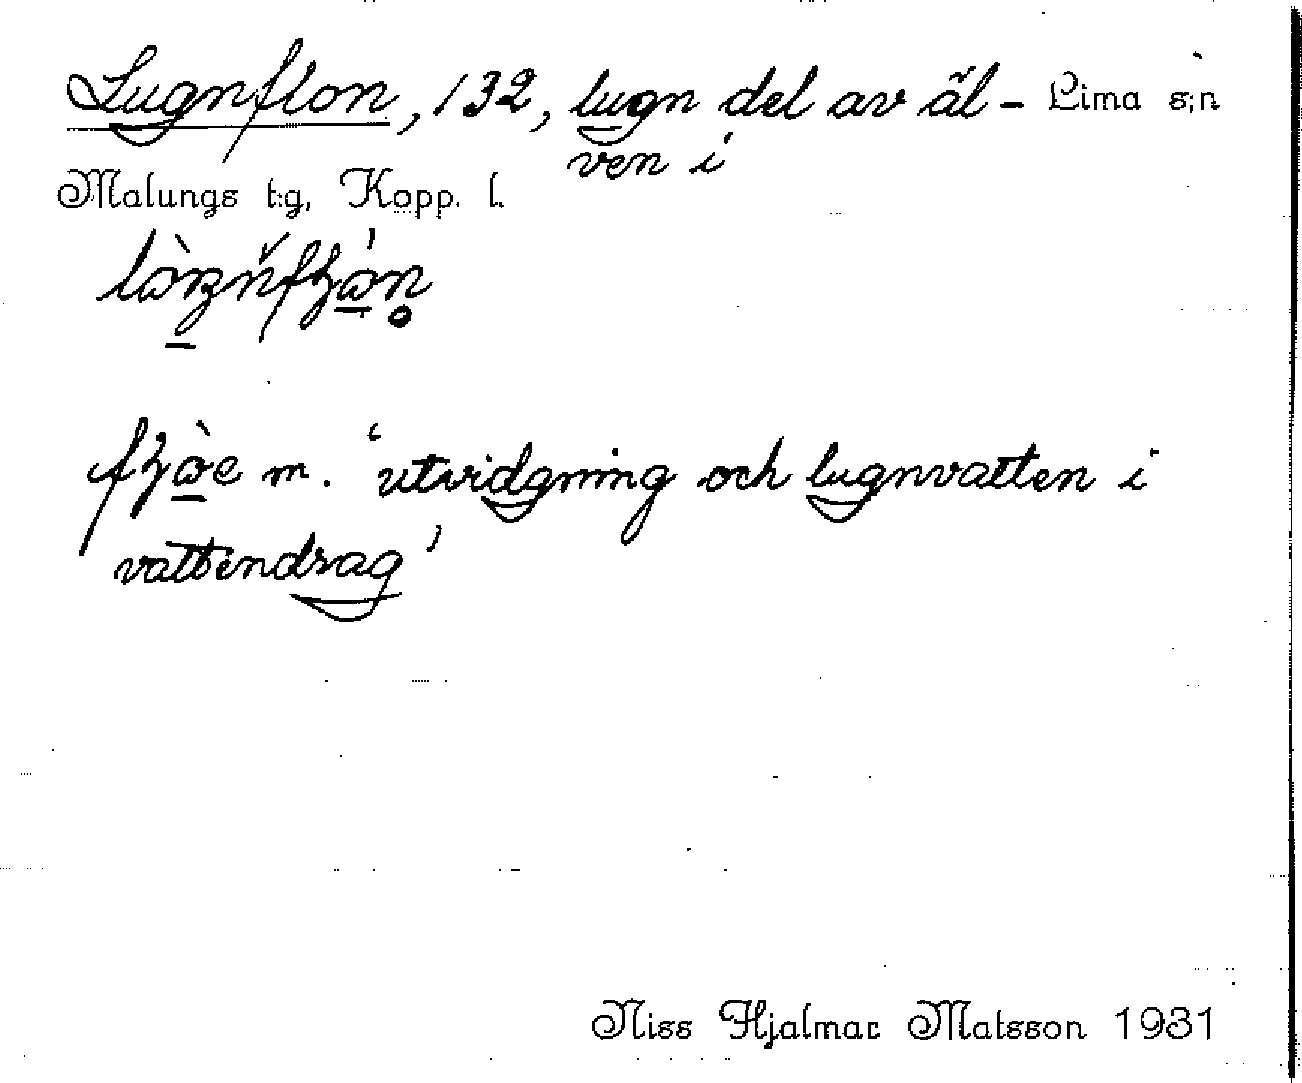 Lugnflon, 132, lugn del av äl- Lima s:n
ven i
Malungs t:g, Kopp. l.
fʒòe m. ‘utvidgning och lugnvatten i
vattendrag’
Niss Hjalmar Matsson 1931